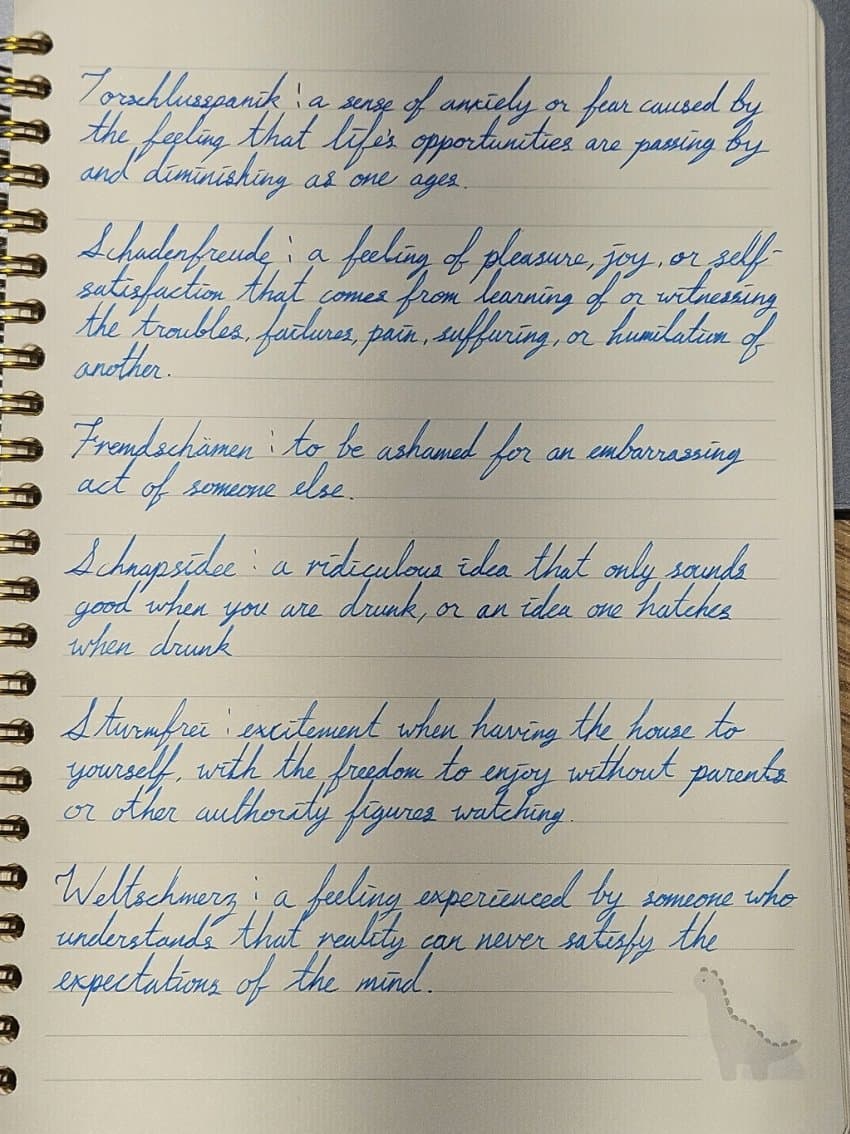 Torschlusspanik : a sense of anxiety or fear caused by
the feeling that life's opportunities are passing by
and diminishing as one ages.
Schadenfreude : a feeling of pleasure, joy, or self-
satisfaction that comes from learning of or witnessing
the troubles, failures, pain, suffuring, or humilation of
another.
Fremdschämen : to be ashamed for an embarrassing
act of someone else.
Schnapsidee : a ridiculous idea that only sounds
good when you are drunk, or an idea one hatches
when drunk
Sturmfrei : excitement when having the house to
yourself, with the freedom to enjoy without parents
or other authority figures watching.
Weltschmerz : a feeling experienced by someone who
understands that reality can never satisfy the
expectations of the mind.